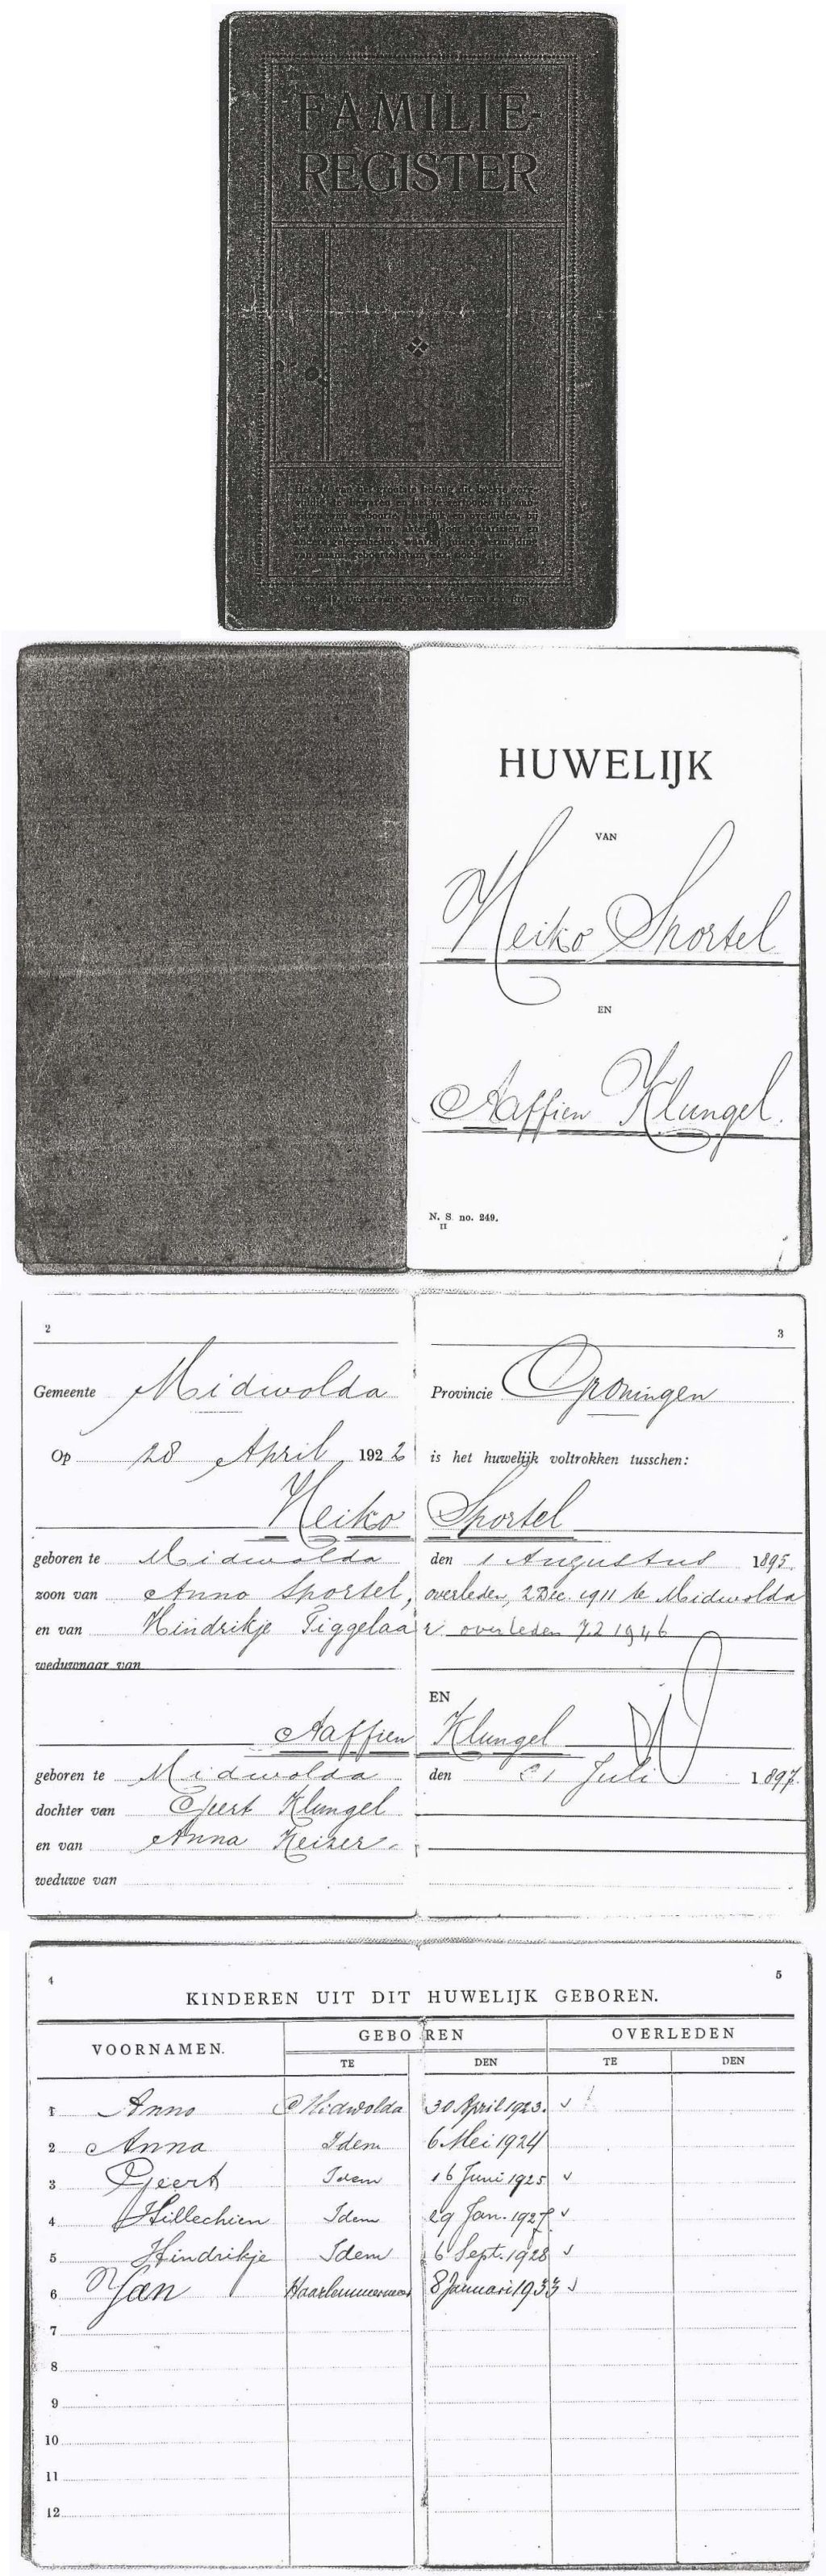 FAMILIE-
REGISTER
HUWELIJK
VAN
Heiko Sportel
EN
Aaffien Klungel.
N. S. no. 249.
II
2
3
Gemeente Midwolda Provincie Groningen
Op 28 April 1922 is het huwelijk voltrokken tusschen:
Heiko Sportel
geboren te Midwolda den 1 Augustus 1895.
zoon van Anno Sportel, overleden, 2 Dec. 1911 te Midwolda
en van Hindrikje Tiggelaar overleden 7.2 1946
weduwnaar van
EN
Aaffien Klungel
geboren te Midwolda den 21 Juli 1897.
dochter van Geert Klungel
en van Anna Keizer.
weduwe van
4
5
KINDEREN UIT DIT HUWELIJK GEBOREN.
VOORNAMEN. GEBOREN OVERLEDEN
TE DEN TE DEN
1 Anno Midwolda 30 April 1923.
2 Anna Idem 6 Mei 1924
3 Geert Idem 16 Juni 1925
4 Hillechien Idem 29 Jan. 1927.
5 Hindrikje Idem 6 Sept. 1928
6 Jan Haarlemmermeer 8 Januari 1933
7
8
9
10
11
12